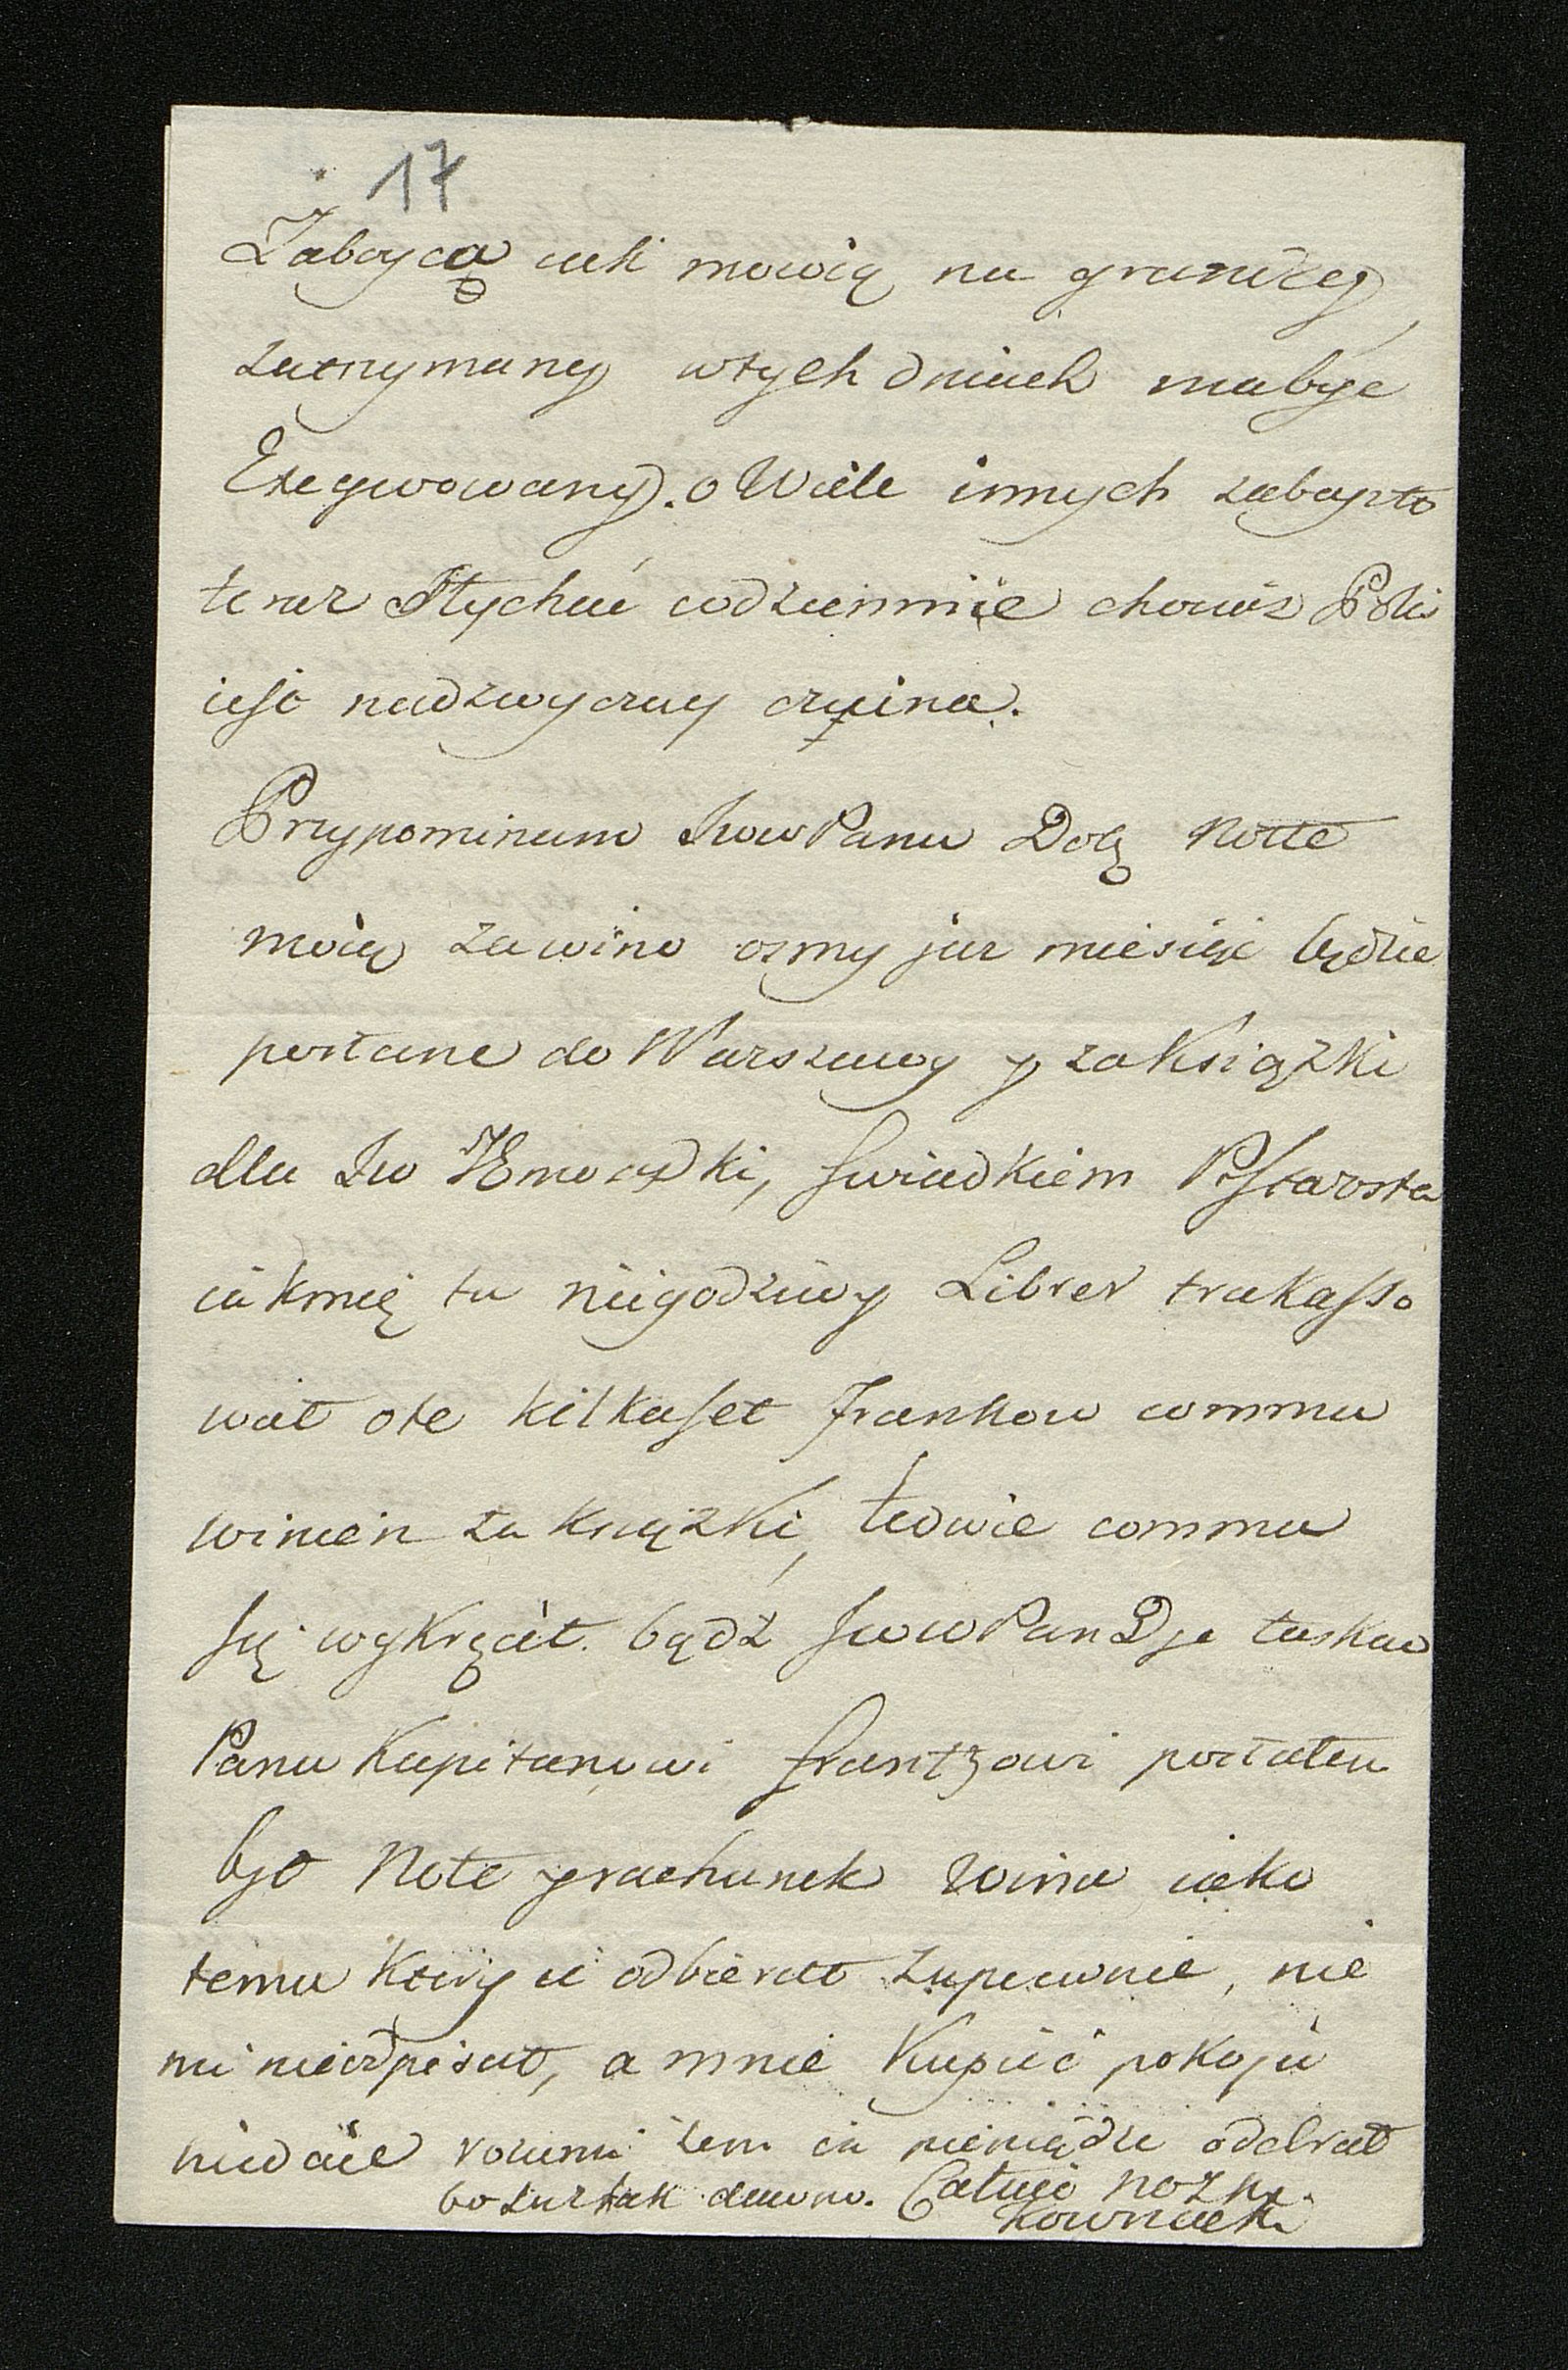 17
Zaboyca iak mowią na granicy
zatrzymany wtych dniach mabyc
Exegwowany. o Wiele innych zaboystw
teraz Słychać codziennie chociaż Poli
iest nadzwyczay czyina.
Przypominam Jww Panu Dob notte
moią zawino osmy już miesiąc będzie
posłane do Warszawy y zaksiążki
dla Jw swiadkiem P. Starosta
iakmię tu niegodziwy Librer trakasso
wał ote kilkaset Frankow commu
winien za książki, ledwie commu
się wykręcił. bądź Jww Pan D je łaskaw
Panu Kapitanowi Frantzowi posłałem
był Note y rachunek wina iako
temu ktory ie odbierał zupewnie, nic
mi nieodpisał, a mnie Kupiec pokoju
niedaie rozumi żem ia pieniądze odebrał
bo iuż tak dawno. Całuię nozki
Kownacki